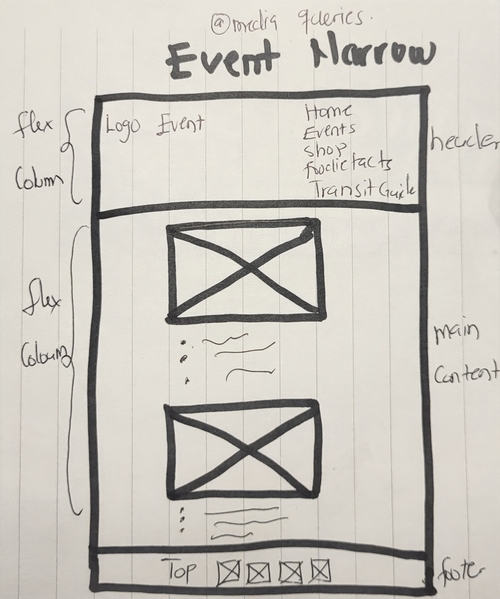 @media queries.
Event Narrow
flex
Column
Logo Event
Home
Events
Shop
foodie facts
Transit Guide
header
flex
Coloumn
main
Content
Top
footer